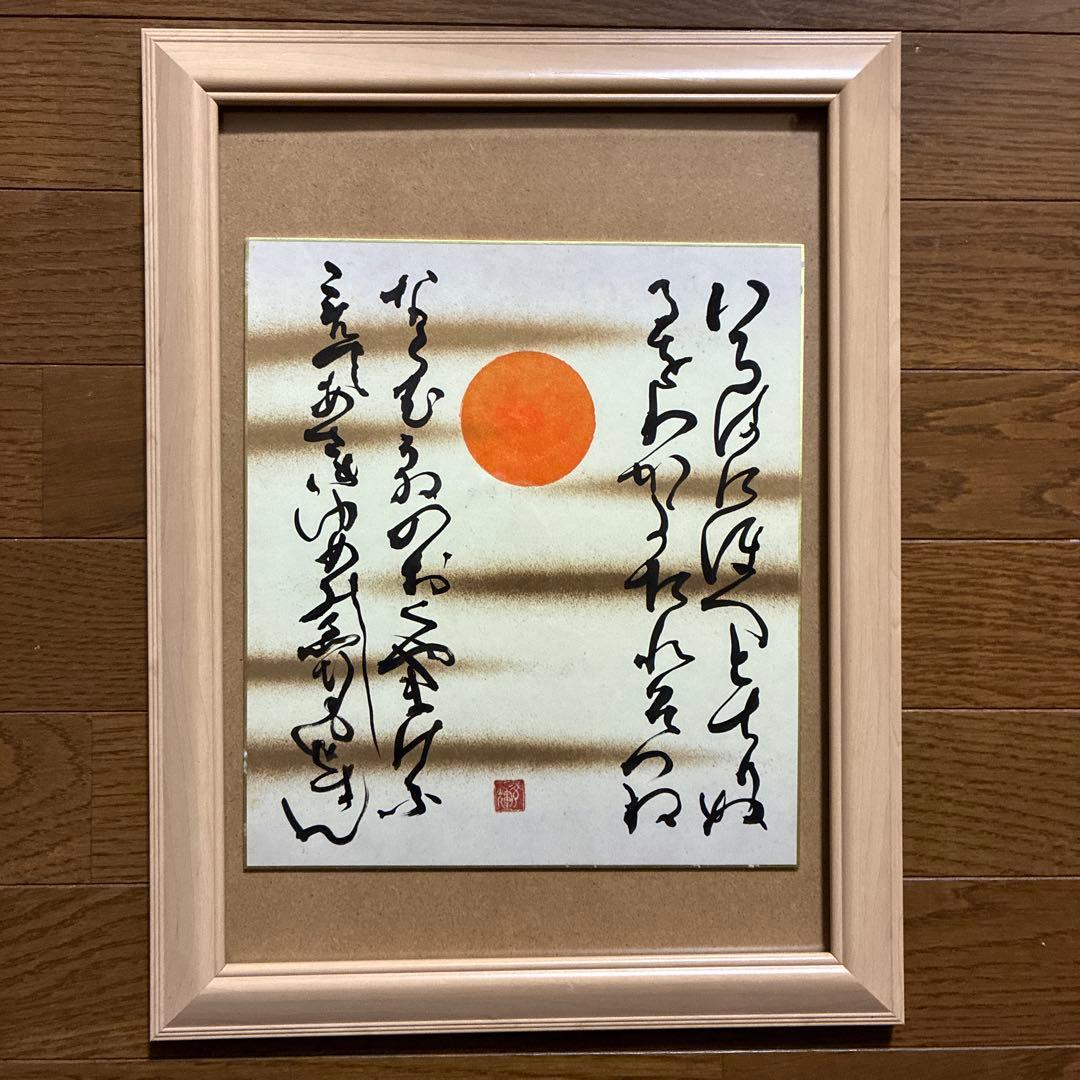 いろはにほへとちりぬ
るをわかよたれそつね
ならむうゐのおくやまけふ
こえてあさきゆめみしゑひもせすん